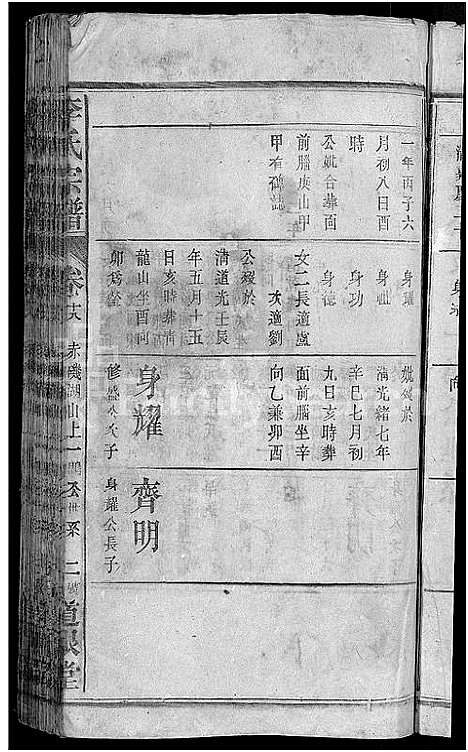 一年丙子六
月初八日酉
時
公妣合葬面
前腦庚山甲
甲有碑誌
身耀
身祖
身功
身德
女二長適盧
次適劉
公歿於
清道光壬辰
年五月十五
日亥時葬青
龍山坐酉向
卯為塋
妣歿於
清光緒七年
辛巳七月初
九日亥時葬
面前腦坐辛
向乙兼卯酉
身耀
修盛公次子
齊明
身耀公長子
李氏宗譜
卷十六
赤磯湖山上一
公世系
二
道銀堂